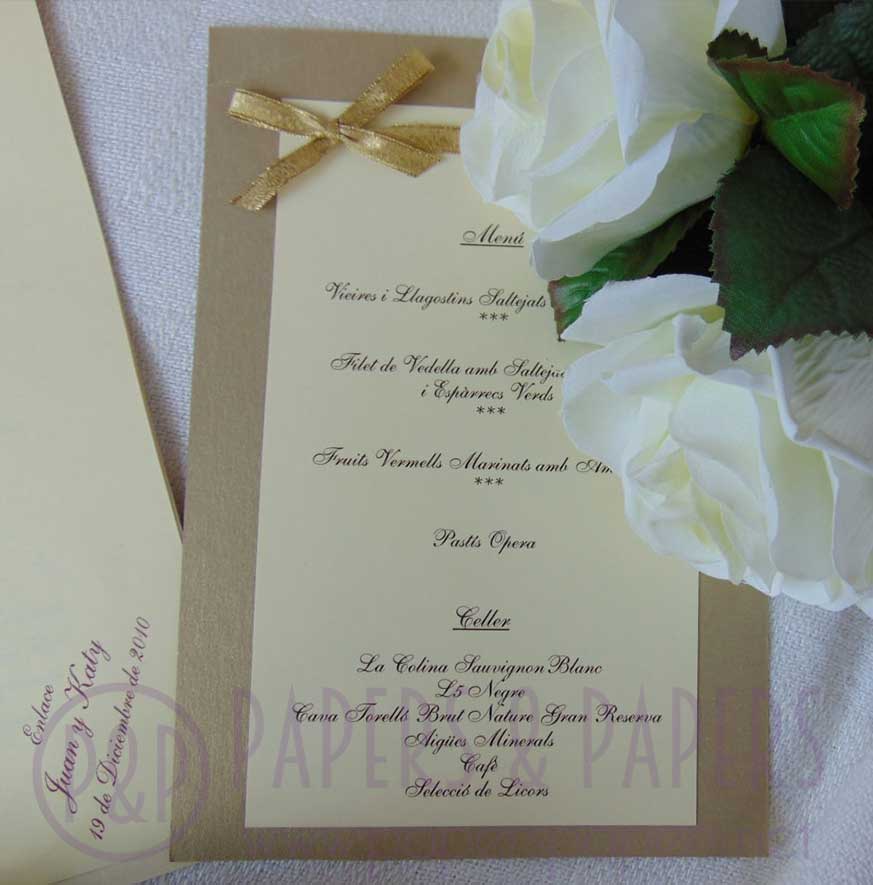 Menú
Vieires i Llagostins Saltejats
***
Filet de Vedella amb
i Espàrrecs Verds
***
Fruits Vermells Marinats amb
***
Pastís Opera
Celler
La Colina Sauvignon Blanc
L5 Negre
Cava Torelló Brut Nature Gran Reserva
Aigües Minerals
Cafè
Selecció de Licors
Enlace
Juan y Katy
19 de Diciembre de 2010
P&P PAPERS & PAPERS